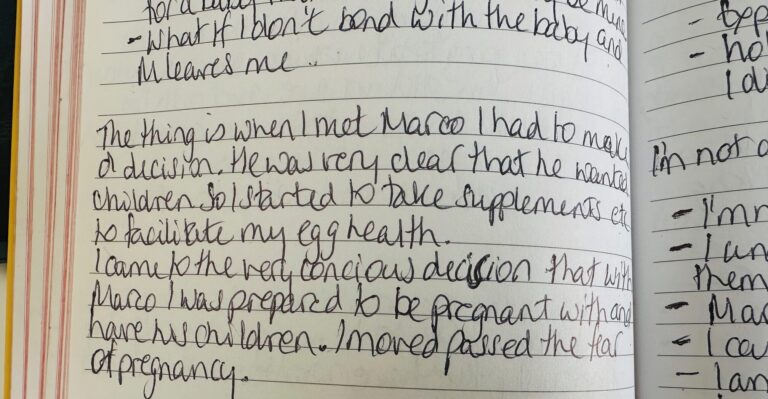 for a
- What if I don't bond with the baby and
M leaves me ..
The thing is when I met Marco I had to make
a decision. He was very clear that he wanted
children so I started to take supplements etc
to facilitate my egg health.
I came to the very concious decision that with
Marco I was prepared to be pregnant with and
have his children. I moved passed the fear
of pregnancy.
-
- ho
I di
I'm not a
- I'm
- I un
them
- Mar
- I cou
- I an